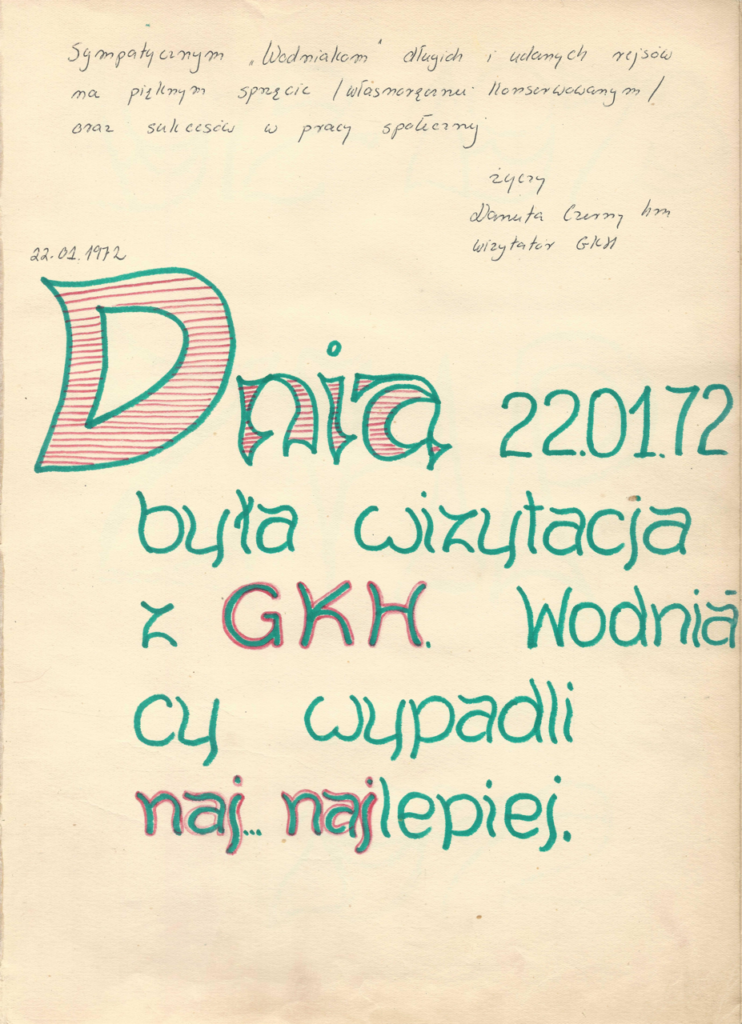 Sympatycznym „Wodniakom" długich i udanych rejsów
na pięknym sprzęcie /własnoręcznie konserwowanym/
oraz sukcesów w pracy społecznej
życzy
Danuta Czerny hm
wizytator GKH
22.01.1972
Dnia 22.01.72
była wizytacja
z GKH. Wodnia
cy wypadli
naj... najlepiej.